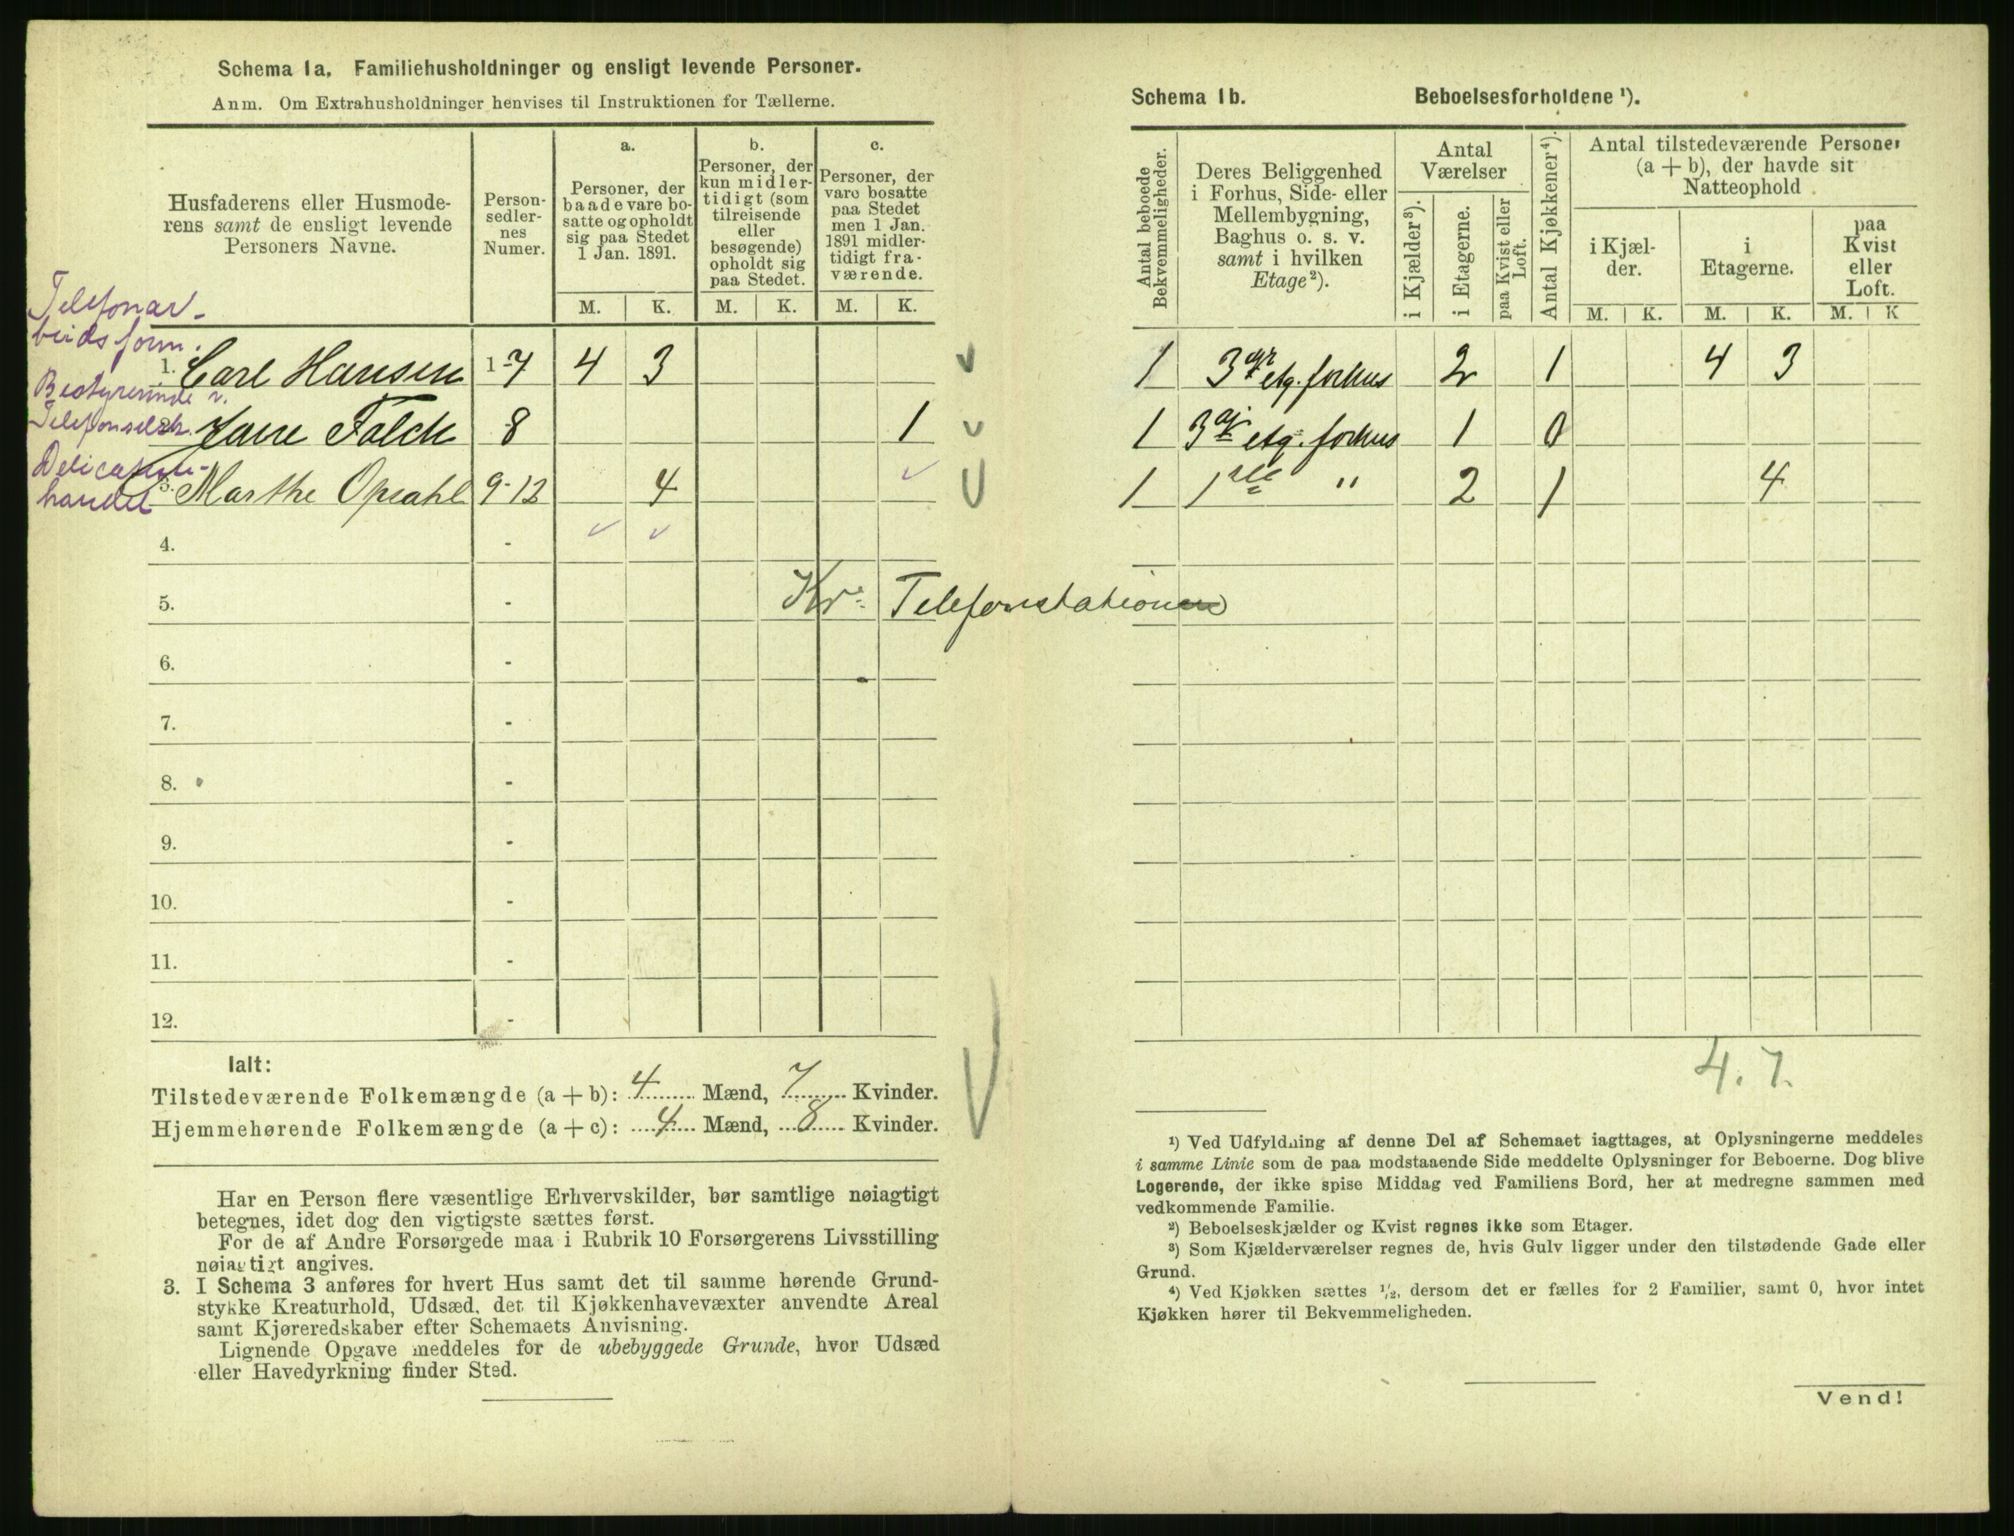 Schema 1a. Familiehusholdninger og ensligt levende Personer.
Anm. Om Extrahusholdninger henvises til Instruktionen for Tællerne.
Husfaderens eller Husmode-
rens samt de ensligt levende
Personers Navne.
Person-
sedler-
nes
Numer.
a.
Personer, der
baade vare bo-
satte og opholdt
sig paa Stedet
1 Jan. 1891.
b.
Personer, der
kun midler-
tidigt (som
tilreisende
eller
besøgende)
opholdt sig
paa Stedet.
c.
Personer, der
vare bosatte
paa Stedet
men 1 Jan.
1891 midler-
tidigt fra-
værende.
M. K. M. K. M. K.
Telefonar-
beidsform.
1. Carl Hansen 1-7 4 3
Bestyrerinde v.
Telefonselsk.
Falck 8 1
Delicatesse-
handel
3. Marthe Opsahl 9-12 4
4. -
5. - Kr. Telefonstation
6. -
7. -
8. -
9. -
10. -
11. -
12. -
Ialt:
Tilstedeværende Folkemængde (a + b): 4 Mænd, 7 Kvinder.
Hjemmehørende Folkemængde (a + c): 4 Mænd, 8 Kvinder.
Har en Person flere væsentlige Erhvervskilder, bør samtlige nøiagtigt
betegnes, idet dog den vigtigste sættes først.
For de af Andre Forsørgede maa i Rubrik 10 Forsørgerens Livsstilling
nøiagtigt angives.
3. I Schema 3 anføres for hvert Hus samt det til samme hørende Grund-
stykke Kreaturhold, Udsæd, det til Kjøkkenhavevæxter anvendte Areal
samt Kjøreredskaber efter Schemaets Anvisning.
Lignende Opgave meddeles for de ubebyggede Grunde, hvor Udsæd
eller Havedyrkning finder Sted.
Schema 1b. Beboelsesforholdene ¹).
Antal beboede
Bekvemmeligheder.
Deres Beliggenhed
i Forhus, Side- eller
Mellembygning,
Baghus o. s. v.
samt i hvilken
Etage²).
Antal
Værelser
i Kjælder³).
i Etagerne.
paa Kvist eller
Loft.
Antal Kjøkkener⁴).
Antal tilstedeværende Personer
(a + b), der havde sit
Natteophold
i Kjæl-
der.
i
Etagerne.
paa
Kvist
eller
Loft.
M. K. M. K. M. K
1 3 etg. forhus 2 1 4 3
1 3 etg. forhus 1 0
1 1 " 2 1 4
4. 7.
¹) Ved Udfyldning af denne Del af Schemaet iagttages, at Oplysningerne meddeles
i samme Linie som de paa modstaaende Side meddelte Oplysninger for Beboerne. Dog blive
Logerende, der ikke spise Middag ved Familiens Bord, her at medregne sammen med
vedkommende Familie.
²) Beboelseskjælder og Kvist regnes ikke som Etager.
³) Som Kjælderværelser regnes de, hvis Gulv ligger under den tilstødende Gade eller
Grund.
⁴) Ved Kjøkken sættes ½, dersom det er fælles for 2 Familier, samt 0, hvor intet
Kjøkken hører til Bekvemmeligheden.
Vend!